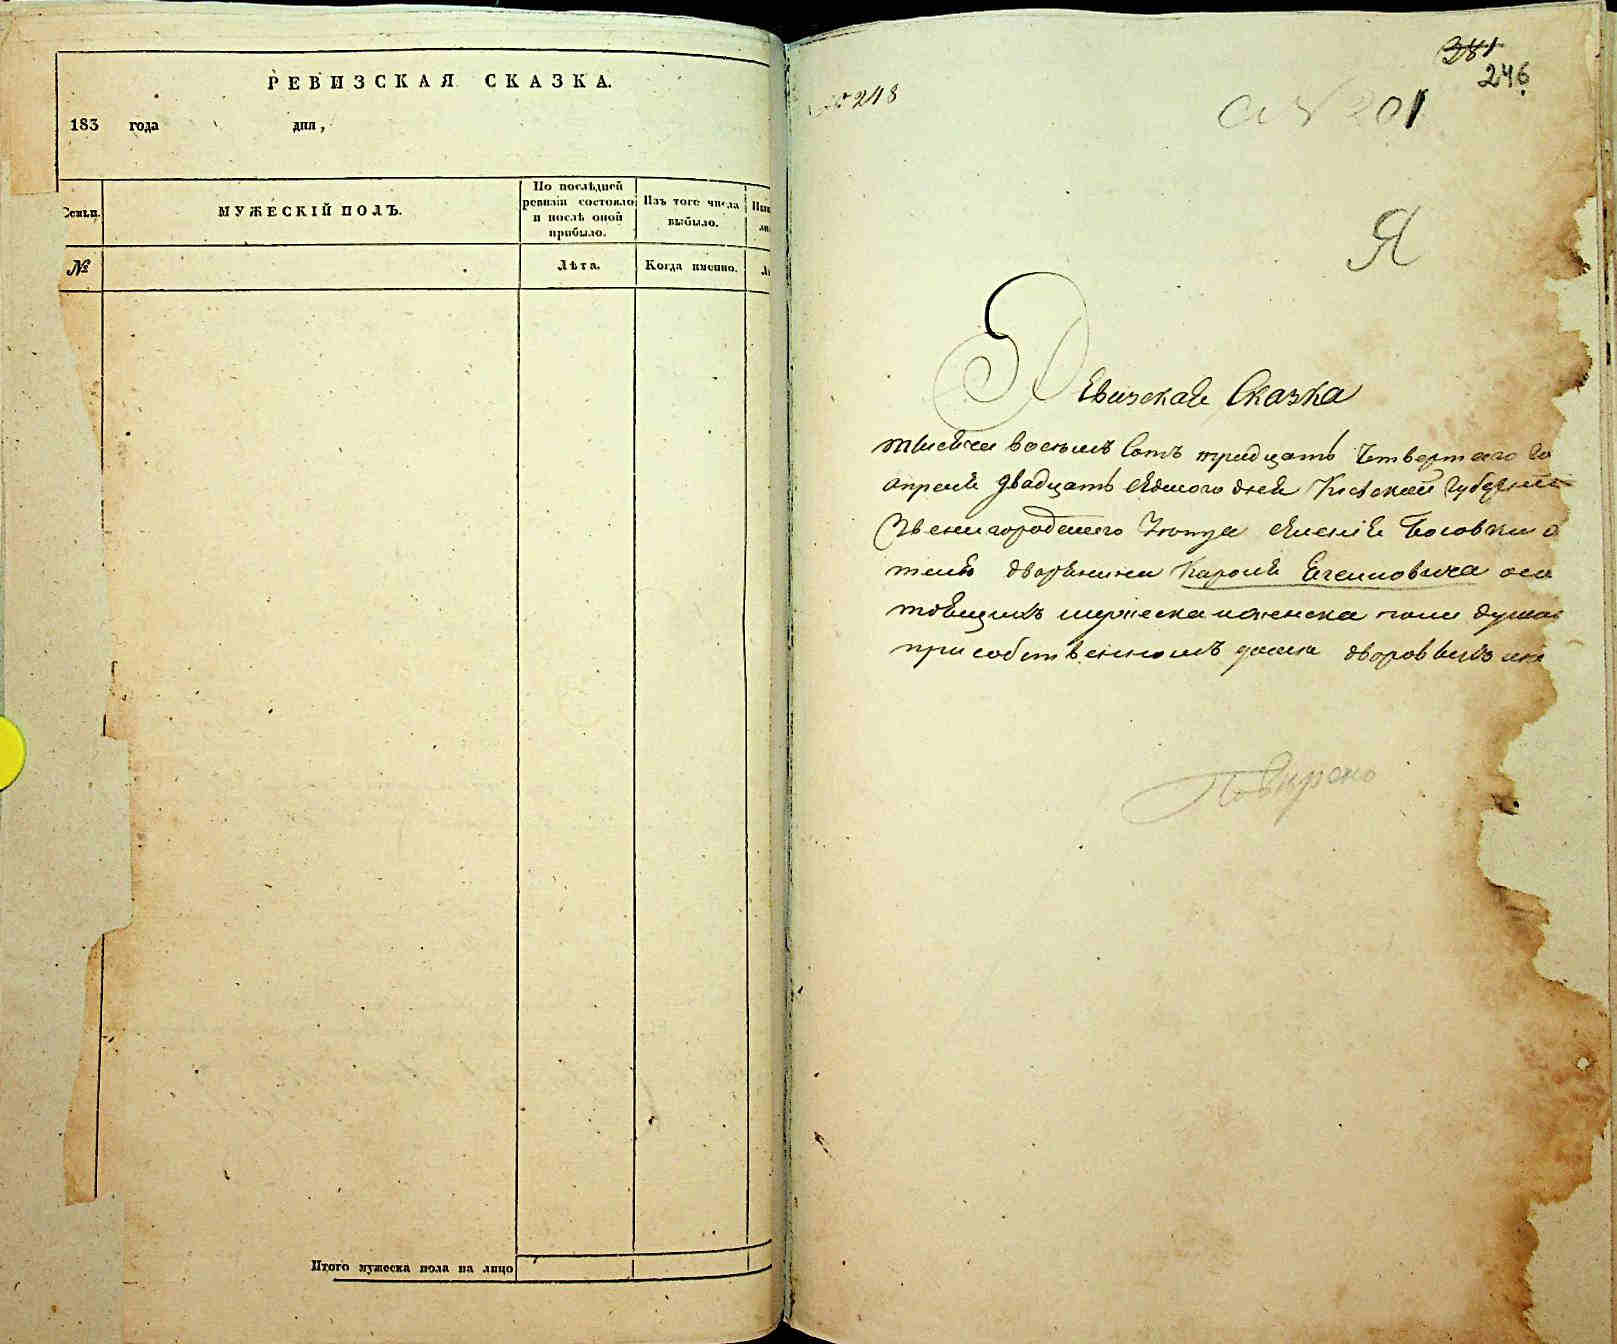 РЕВИЗСКАЯ СКАЗКА.
183 года дня,
Семьи.
МУЖЕСКІЙ ПОЛЪ.
По послѣдней
ревизіи состояло
и послѣ оной
прибыло.
Изъ того числа
выбыло.
№
Лѣта.
Когда именно.
Итого мужеска пола на лицо
№ 248
381
246
201
Я
Ревизская Сказка
тысяча восемь Сотъ тридцать Четвертаго Го
апреля двадцать седмого дня Кіевской Губерніи
Звенигородскаго уезда имения
дворянина Кароля о со
тоящихъ мужеска и женска пола душах
при собственномъ доме дворовыхъ лю
Поверено